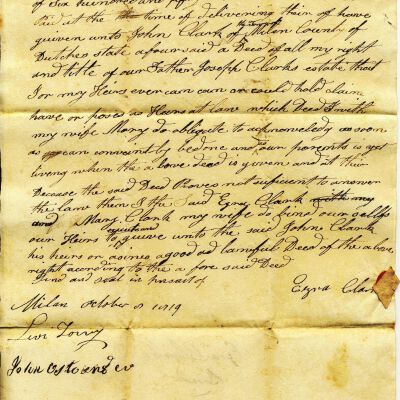 of Six hundred and
said at the time of delivering them of have
guiven unto John Clark of the Town of Milen County of
Dutches state afour said a Deed of all my right
and title of our Father Joseph Clarks estate that
I or my Heirs ever can own or could hold claim
have or poses as Heirs at law which Deed I with
my wife Mary do obligate to acknowledg as soon
as can convenantly be done and our parents is yet
liveng when the above dead is given and if this
Because the said Deed Proves not sufisent to answer
the law then I the said Ezra Clark with my
and Mary Clark my wife do bind our sellfs
our Heirs to guive unto the said John Clark
his heirs or asines a good ad lawful Deed of the above
right acording to the a fore said Deed
hand and seal in
Ezra Clark
Milan october 8 1819
Levi Torry
John Ostrander